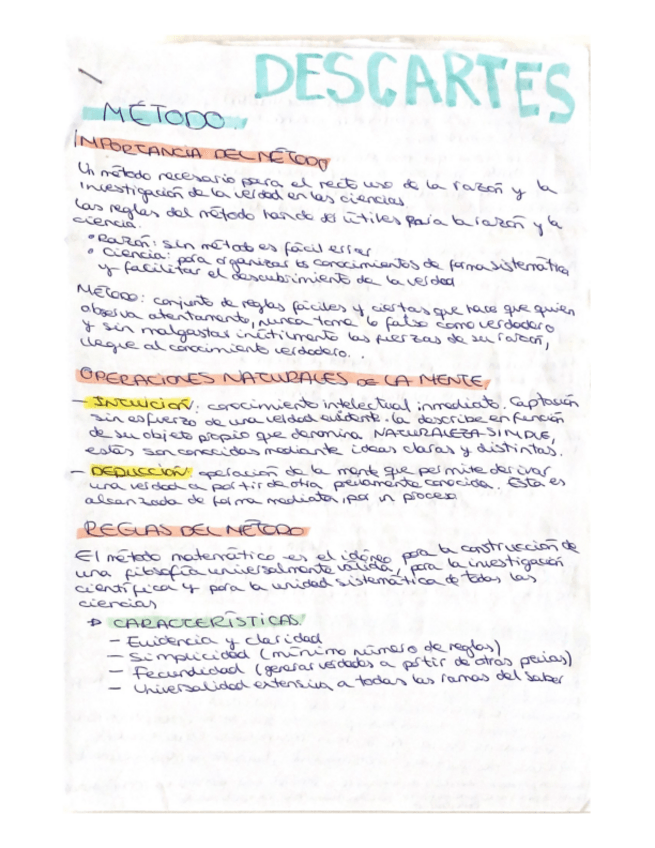 DESCARTES
MÉTODO.
IMPORTANCIA DEL MÉTODO
Un método necesario para el recto uso de la razón y la
investigación de la verdad en las ciencias.
Las reglas del método han de ser útiles para la razón y la
ciencia.
• Razón: sin método es fácil errar
• Ciencia: para organizar los conocimientos de forma sistemática
y facilitar el descubrimiento de la verdad
MÉTODO: conjunto de reglas fáciles y ciertas que hace que quien
observa atentamente, nunca tome lo falso como verdadero
y sin malgastar inútilmente las fuerzas de su razón,
llegue al conocimiento verdadero.
OPERACIONES NATURALES DE LA MENTE.
– INTUICIÓN: conocimiento intelectual inmediato. Captación
sin esfuerzo de una verdad evidente. La describe en función
de su objeto propio que denomina NATURALEZA SIMPLE,
estas son conocidas mediante ideas claras y distintas.
– DEDUCCIÓN: operación de la mente que permite derivar
una verdad a partir de otra previamente conocida. Esta es
alcanzada de forma mediata, por un proceso
REGLAS DEL MÉTODO
El método matemático es el idóneo para la construcción de
una filosofía universalmente válida, para la investigación
científica y para la unidad sistemática de todas las
ciencias
→ CARACTERÍSTICAS:
– Evidencia y claridad
– Simplicidad (mínimo número de reglas)
– Fecundidad (generar verdades a partir de otras previas)
– Universalidad extensiva a todas las ramas del saber